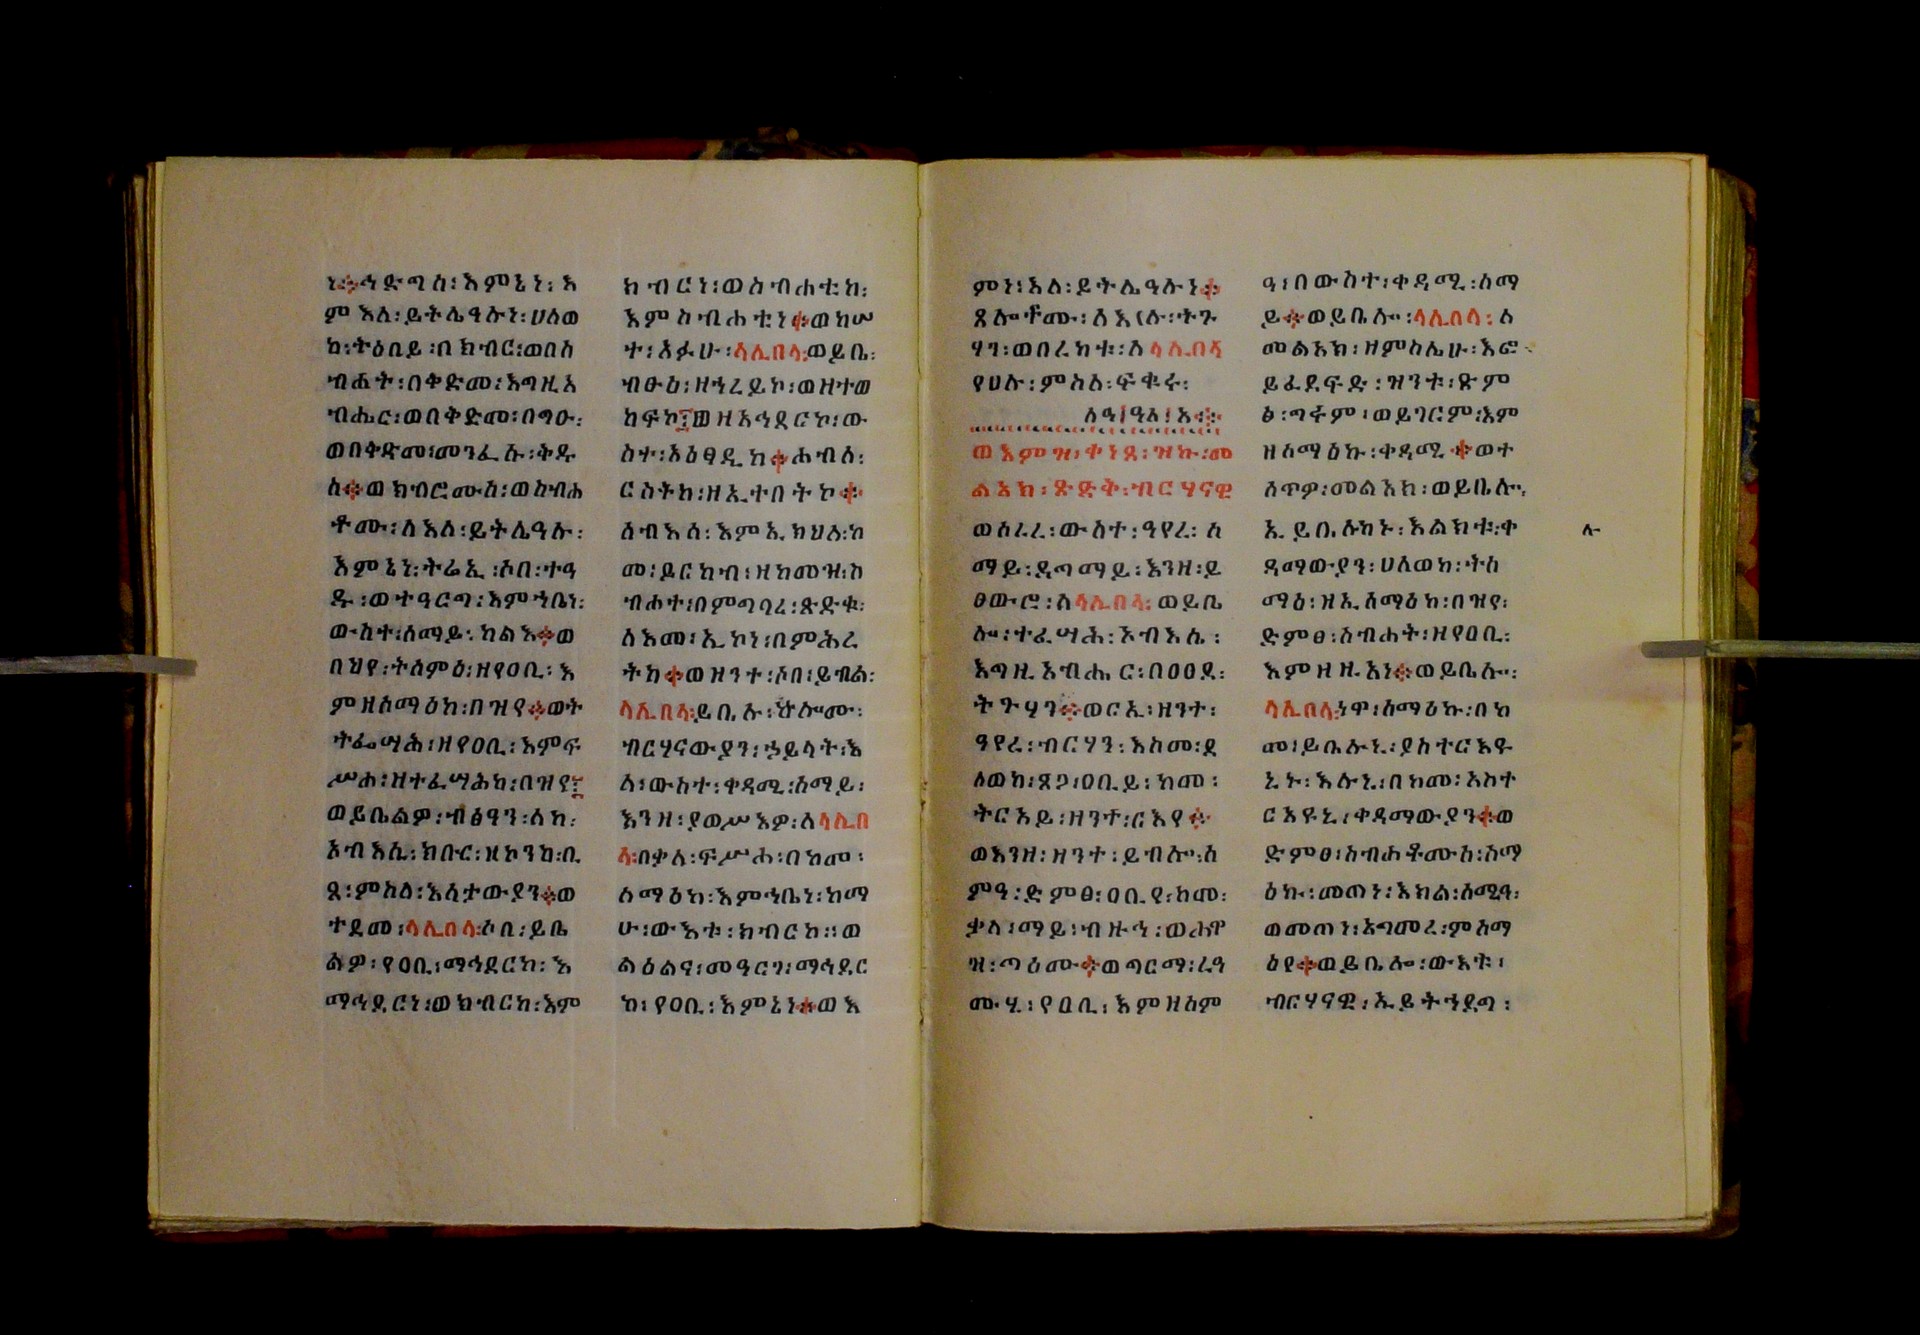 ነ፨ኀድጣስ፡እምኔነ፡እ
ምእለ፡ይትሌዓሉነ፡ሀለወ
ከ፡ትዕበይ፡በክብር፡ወበስ
ብሐት፡በቅድመ፡እግዚአ
ብሔር፡ወበቅድመ፡በግዑ፡
ወበቅድመ፡መንፈሱ፡ቅዱ
ስ፨ወክብሮሙሰ፡ወስብሐ
ቶሙ፡ለእለ፡ይትሌዓሉ፡
እምኔነ፡ትሬኢ፡ሶበ፡ተዓ
ዱ፡ወተዓርግ፡እምኀቤነ፡
ውስተ፡ሰማይ፡ካልእ፨ወ
በህየ፡ትሰምዕ፡ዘየዐቢ፡እ
ምዘሰማዕከ፡በዝየ፨ወት
ትፌሣሕ፡ዘየዐቢ፡እምፍ
ሥሐ፡ዘተፈሣሕከ፡በዝየ፤
ወይቤልዎ፡ብፅዓን፡ለከ፡
አብእሲ፡ክቡር፡ዘኮንከ፡ቢ
ጸ፡ምስለ፡እለታውያን፨ወ
ተደመ፡ላሊበላ፡ሶበ፡ይቤ
ልዎ፡የዐቢ፡ማኅደርከ፡እ
ማኅደርነ፡ወክብርከ፡እም
ክብርነ፡ወስብሐቲከ፡
እምስብሐቲነ፨ወከሠ
ተ፡አፉሁ፡ላሊበላ፡ወይቤ፡
ብፁዕ፡ዘኀረይኮ፡ወዘተወ
ከፍኮ፤ወዘአኅደርኮ፡ው
ስተ፡አዕፀዲከ፨ሐብለ፡
ርስትከ፡ዘኢተበትኮ፨
ለብእሰ፡እምኢክህለ፡ከ
መ፡ይርከብ፡ዘከመዝ፡ስ
ብሐተ፡በምግባረ፡ጽድቁ፡
ለእመ፡ኢኮነ፡በምሕረ
ትከ፨ወዝንተ፡ሶበ፡ይብል፡
ላሊበላ፡ይቢሉ፡ኵሎሙ፡
ብርሃናውያን፡ኃይላት፡እ
ለ፡ውስተ፡ቀዳሚ፡ሰማይ፡
እንዘ፡ያወሥእዎ፡ለላሊበ
ላ፡በቃለ፡ፍሥሐ፡በከመ፡
ሰማዕከ፡እምኀቤነ፡ከማ
ሁ፡ውእቱ፡ክብርከ፡፡ወ
ልዕልና፡መዓርገ፡ማኅደር
ከ፡የዐቢ፡እምኔነ፨ወእ
ምነ፡እለ፡ይትሌዓሉነ፨
ጸሎቶሙ፡ለእሉ፡ትጉ
ሃን፡ወበረከቱ፡ለላሊበላ
የሀሉ፡ምስለ፡ፍቁሩ፡
ለዓ፤ዓለ፤አ፨
ወእምዝ፡ቀነጸ፡ዝኩ፡መ
ልአክ፡ጽድቅ፡ብርሃናዊ
ወሰረረ፡ውስተ፡ዓየረ፡ሰ
ማይ፡ዳግማይ፡እንዘ፡ይ
ፀውሮ፡ለላሊበላ፡ወይቤ
ሎ፡ተፈሣሕ፡ኦብእሴ፡
እግዚአብሔር፡በዐዐደ፡
ትጉሃን፨ወርኢ፡ዘንተ፡
ዓየረ፡ብርሃን፡እስመ፡ደ
ለወከ፡ጸጋ፡ዐቢይ፡ከመ፡
ትርአይ፡ዘንተ፡ርእየ፨
ወእንዘ፡ዘንተ፡ይብሎ፡ሰ
ምዓ፡ድምፀ፡ዐቢየ፡ከመ፡
ቃለ፡ማይ፡ብዙኅ፡ወሐዋ
ዝ፡ጣዕሙ፨ወግርማ፡ረዓ
ሙሂ፡የዐቢ፡እምዘሰም
ዓ፡በውስተ፡ቀዳሚ፡ሰማ
ይ፨ወይቤሎ፡ላሊበላ፡ለ
መልአክ፡ዘምስሌሁ፡እፎ
ይፈደፍድ፡ዝንቱ፡ጽም
ፅ፡ግሩም፡ወይገርም፡እም
ዘሰማዕኩ፡ቀዳሚ፨ወተ
ሰጥዎ፡መልአክ፡ወይቤሎ፡
ኢይቤሉከኑ፡እልክቱ፡ቀ
ዳማውያን፡ሀለወከ፡ትስ
ማዕ፡ዘኢሰማዕከ፡በዝየ፡
ድምፀ፡ስብሐት፡ዘየዐቢ፡
እምዘዚአነ፨ወይቤሎ፡
ላሊበላ፡ነዋ፡ሰማዕኩ፡በከ
መ፡ይቤሉኒ፡ያስተርእዩ
ኒኑ፡እሉኒ፡በከመ፡አስተ
ርአዩኒ፡ቀዳማውያን፨ወ
ድምፀ፡ስብሐቶሙሰ፡ሰማ
ዕኩ፡መጠነ፡እክል፡ሰሚዓ፡
ወመጠነ፡አግመረ፡ምስማ
ዕየ፨ወይቤሎ፡ውእቱ፡
ብርሃናዊ፡ኢይትኀደግ፡
ሉ